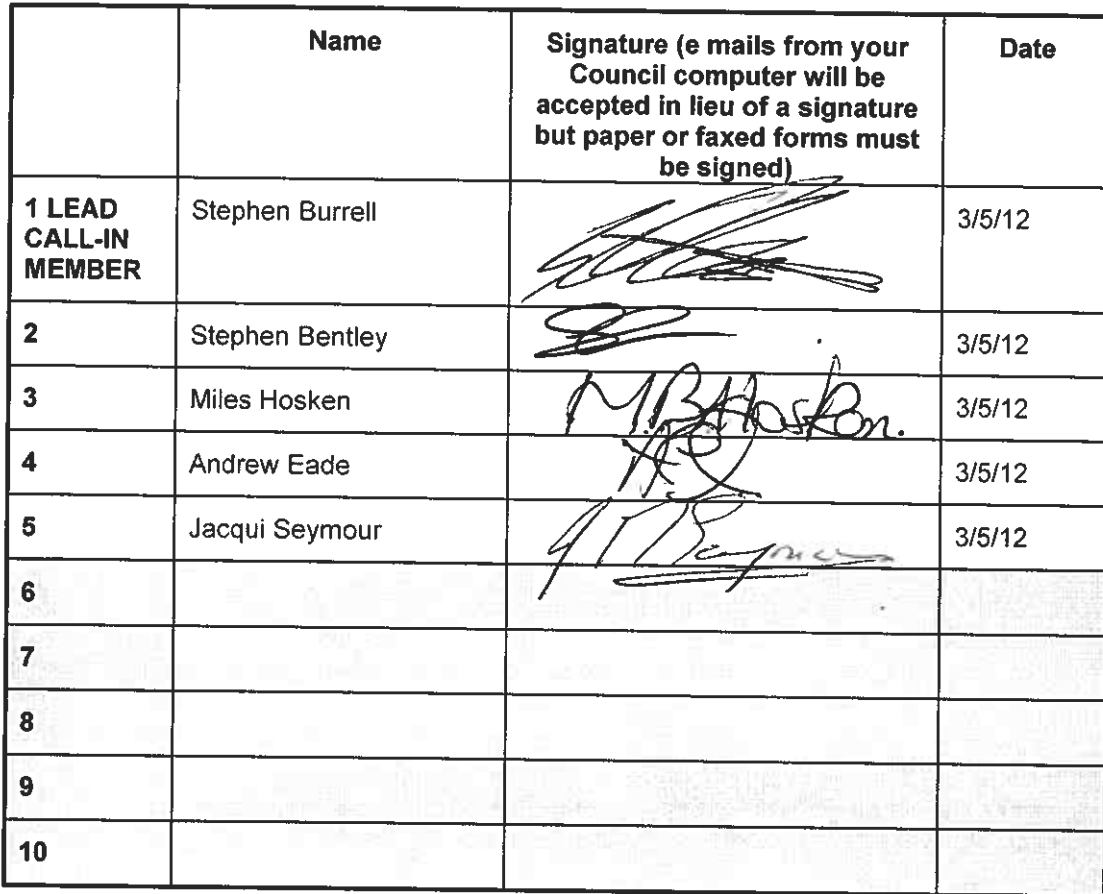 Name
Signature (e mails from your
Council computer will be
accepted in lieu of a signature
but paper or faxed forms must
be signed)
Date
1 LEAD
CALL-IN
MEMBER
Stephen Burrell
3/5/12
2
Stephen Bentley
3/5/12
3
Miles Hosken
M.B.Hosken.
3/5/12
4
Andrew Eade
3/5/12
5
Jacqui Seymour
3/5/12
6
7
8
9
10